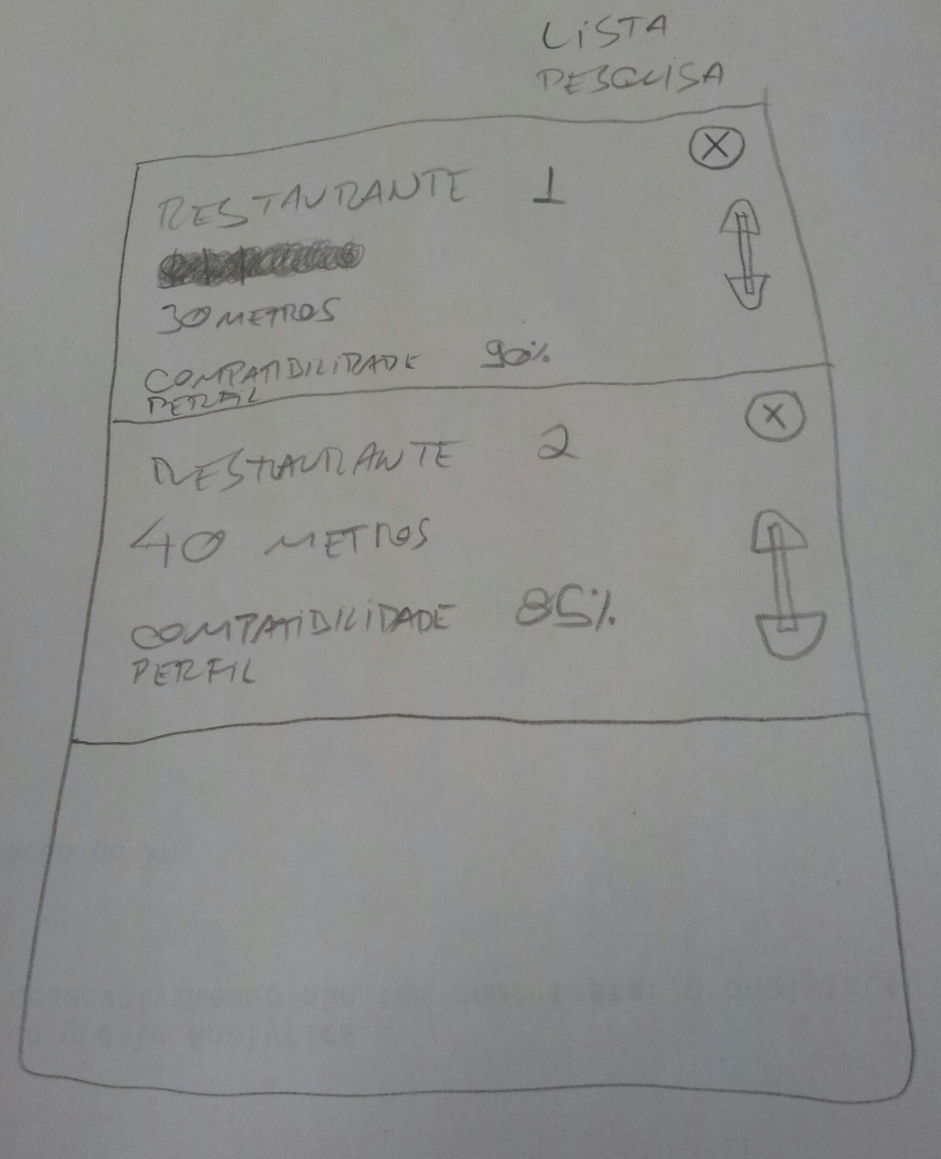 LISTA
PESQUISA
RESTAURANTE 1
30 METROS
COMPATIBILIDADE 90%
PERFIL
RESTAURANTE 2
40 METROS
COMPATIBILIDADE 85%
PERFIL